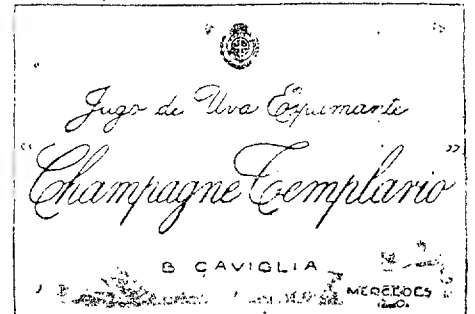 Jugo de Uva Espumante
"Champagne Templario"
B CAVIGLIA
MERCEDES